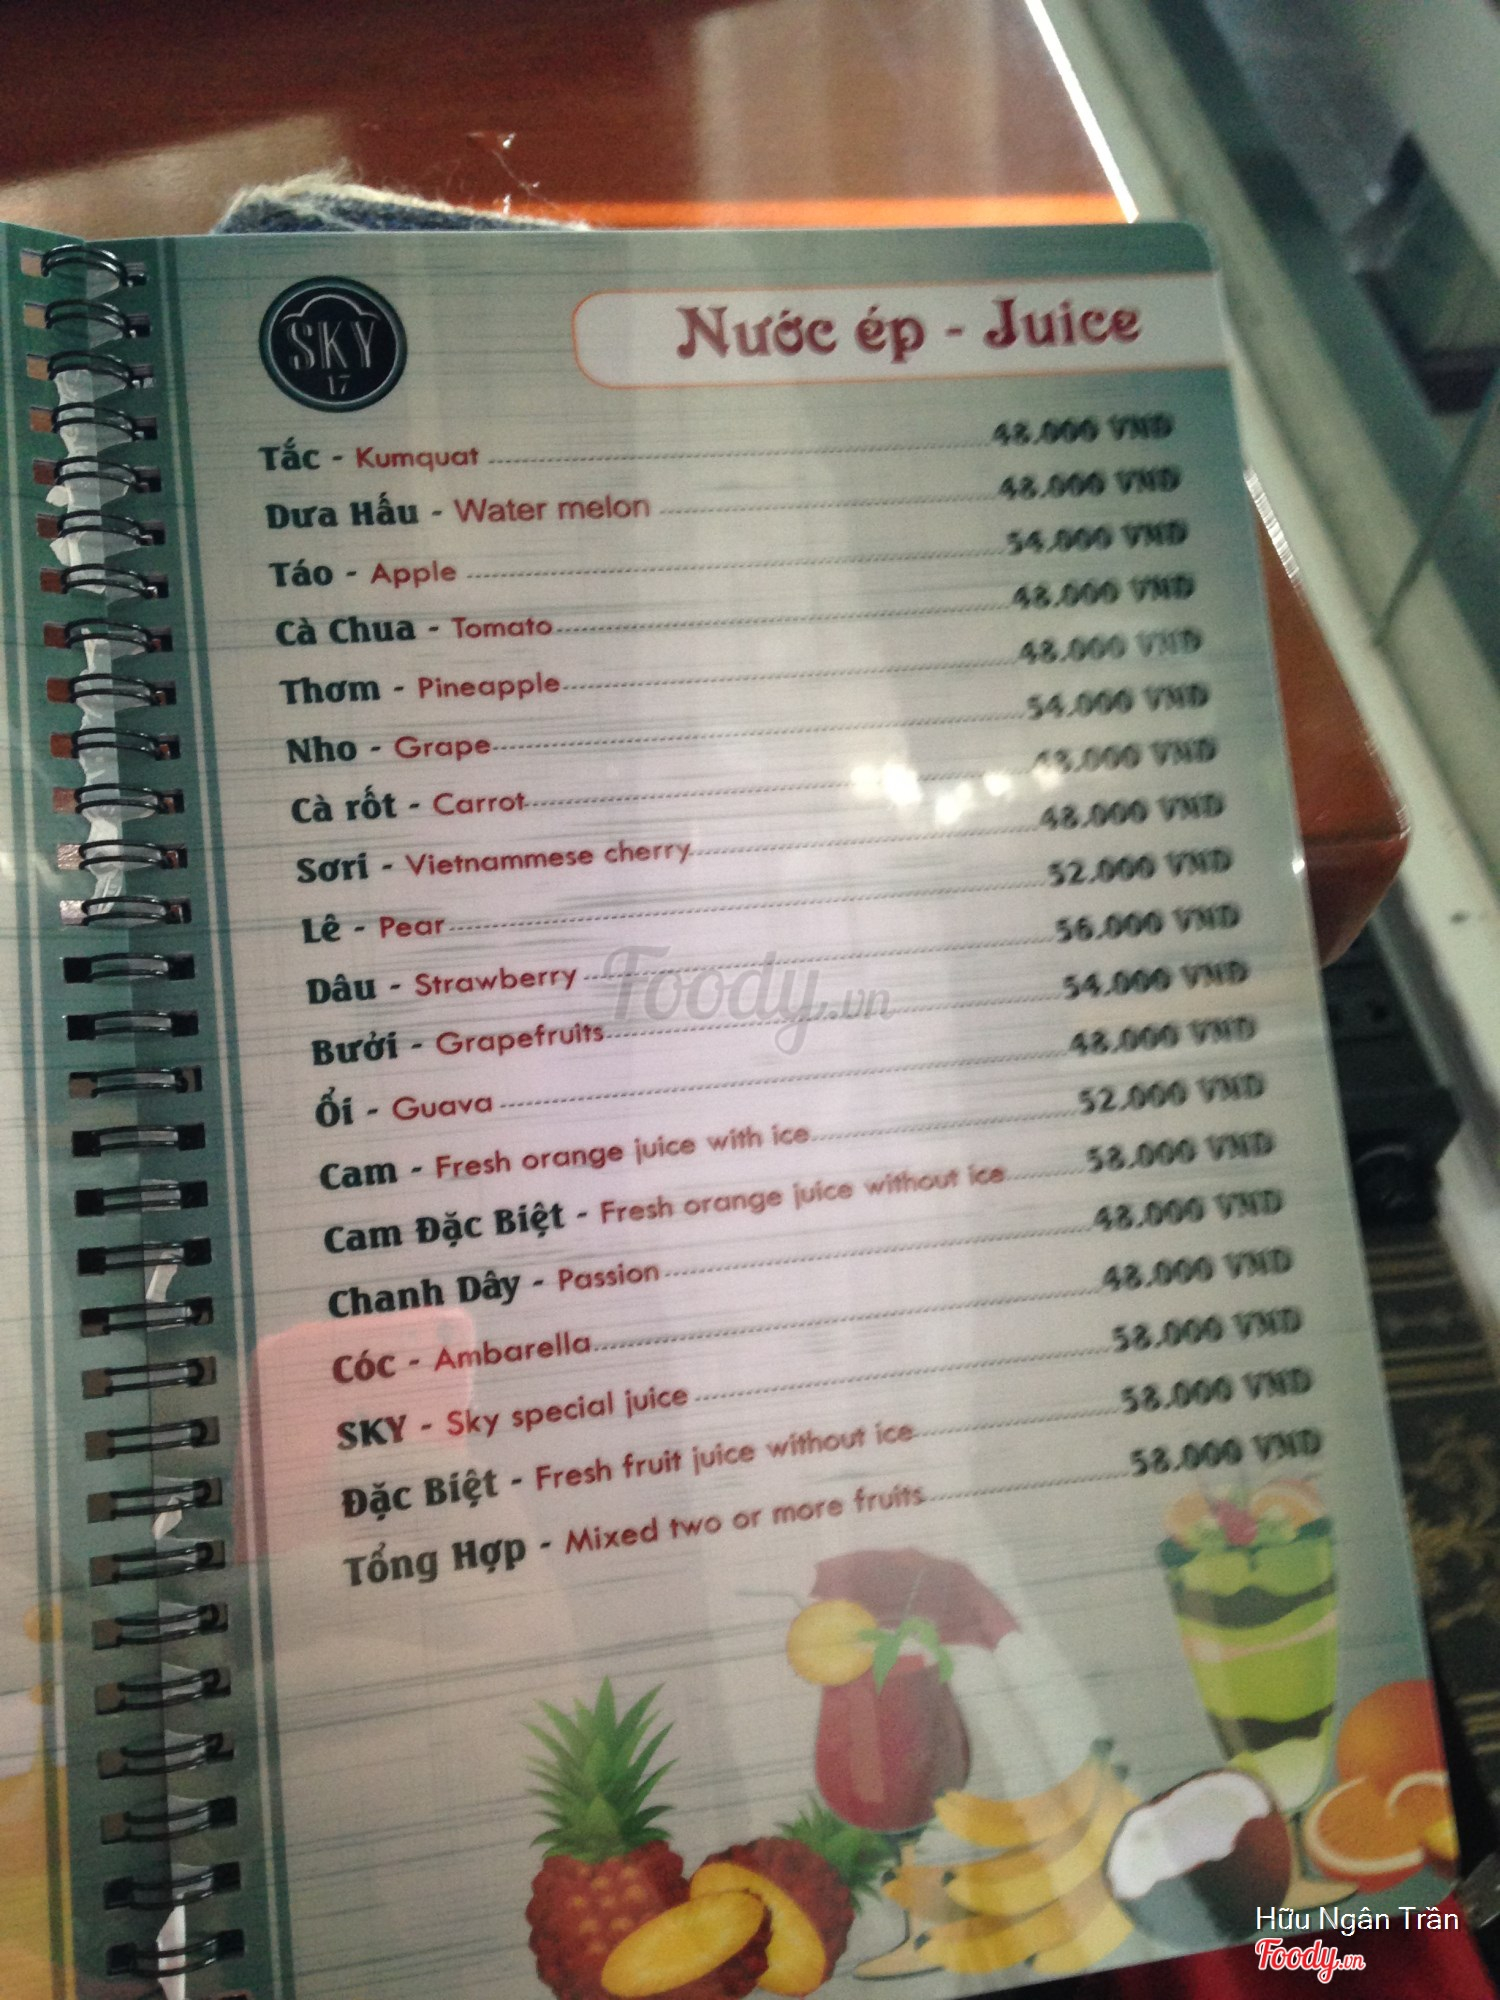 SKY
17
Nước ép - Juice
Tắc - Kumquat 48.000 VND
Dưa Hấu - Water melon 48.000 VND
Táo - Apple 54.000 VND
Cà Chua - Tomato 48.000 VND
Thơm - Pineapple 48.000 VND
Nho - Grape 54.000 VND
Cà rốt - Carrot 48.000 VND
Sơri - Vietnammese cherry 48.000 VND
Lê - Pear 52.000 VND
Dâu - Strawberry 56.000 VND
Bưởi - Grapefruits 54.000 VND
Ổi - Guava 48.000 VND
Cam - Fresh orange juice with ice 52.000 VND
Cam Đặc Biệt - Fresh orange juice without ice 58.000 VND
Chanh Dây - Passion 48.000 VND
Cóc - Ambarella 48.000 VND
SKY - Sky special juice 58.000 VND
Đặc Biệt - Fresh fruit juice without ice 58.000 VND
Tổng Hợp - Mixed two or more fruits 58.000 VND
Foody.vn
Hữu Ngân Trần
Foody.vn